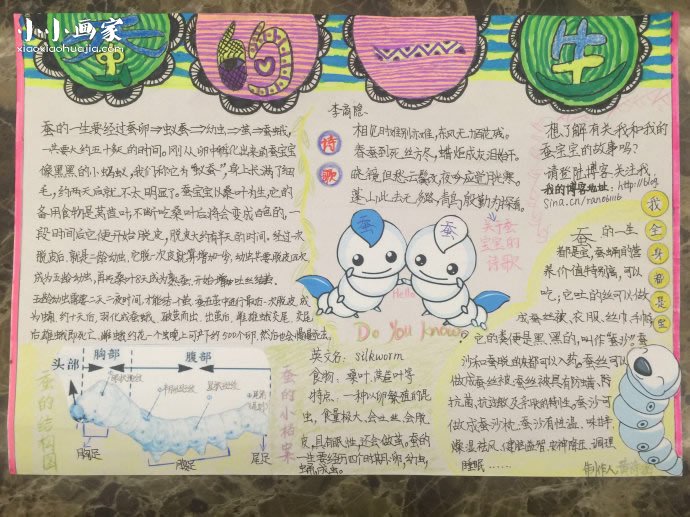 小小画家
xiaoxiaohuajia.com
蚕的一生
蚕的一生要经过蚕卵→蚁蚕→幼虫→茧→蚕蛾,
一共要大约五十天的时间。刚从卵中孵化出来的蚕宝宝
像黑黑的小蚂蚁,我们称它为"蚁蚕",身上长满了细
毛,约两天后就不大明显了。蚕宝宝以桑叶为生,它的
备用食物是莴苣叶。不断吃桑叶后将会变成白色的,一
段时间后它便开始脱皮,脱皮大约有半天的时间。经过一次
脱皮后,就是二龄幼虫,它脱一次皮就算增加一岁,幼虫共要脱皮四次
成为五龄幼虫,再吃桑叶8天成为熟蚕,开始
五龄幼虫需要二天二夜时间,才能结一个茧,
后雄蛾即死亡,雌蛾约花一个晚上可产下约500个卵,然后也会
头部
胸部
腹部
胸足
腹足
尾足
蚕的结构图
李商隐
诗
歌
相见时难别亦难,东风无力百花残。
春蚕到死丝方尽,蜡炬成灰泪始干。
晓镜但愁云鬓改,夜吟应觉月光寒。
蓬山此去无多路,青鸟殷勤为探看。
关于蚕
宝宝的
诗歌
蚕
蚕
Hello
Do You Know
蚕的小档案
英文名:silkworm
食物:桑叶、莴苣叶等
特点:一种以卵繁殖的昆
虫,食量极大,会吐丝,会脱
皮,且有眠性,还会做茧,蚕的
一生要经历四个时期:卵,幼虫,
蛹,成虫。
想了解有关我和我的
蚕宝宝的故事吗?
请登陆博客关注我
我的博客地址:http://blog
sina.cn/ranbllllb
我
全
身
都
是
宝
蚕的一生
都是宝,蚕蛹的营
养价值特别高,可以
吃;它吐的丝可以做
成蚕丝被、衣服、丝巾
它的粪便是黑、黑的,叫作"蚕沙"蚕
沙和蚕脱皮都可以入药。蚕丝可以
做成蚕丝被,蚕丝被具有防螨、除
抗菌,抗过敏及亲肤的特性。蚕沙可
做成蚕沙枕,蚕沙有性温、味甘、
燥湿祛风、健脑益智、安神降压、调理
睡眠……
制作人: